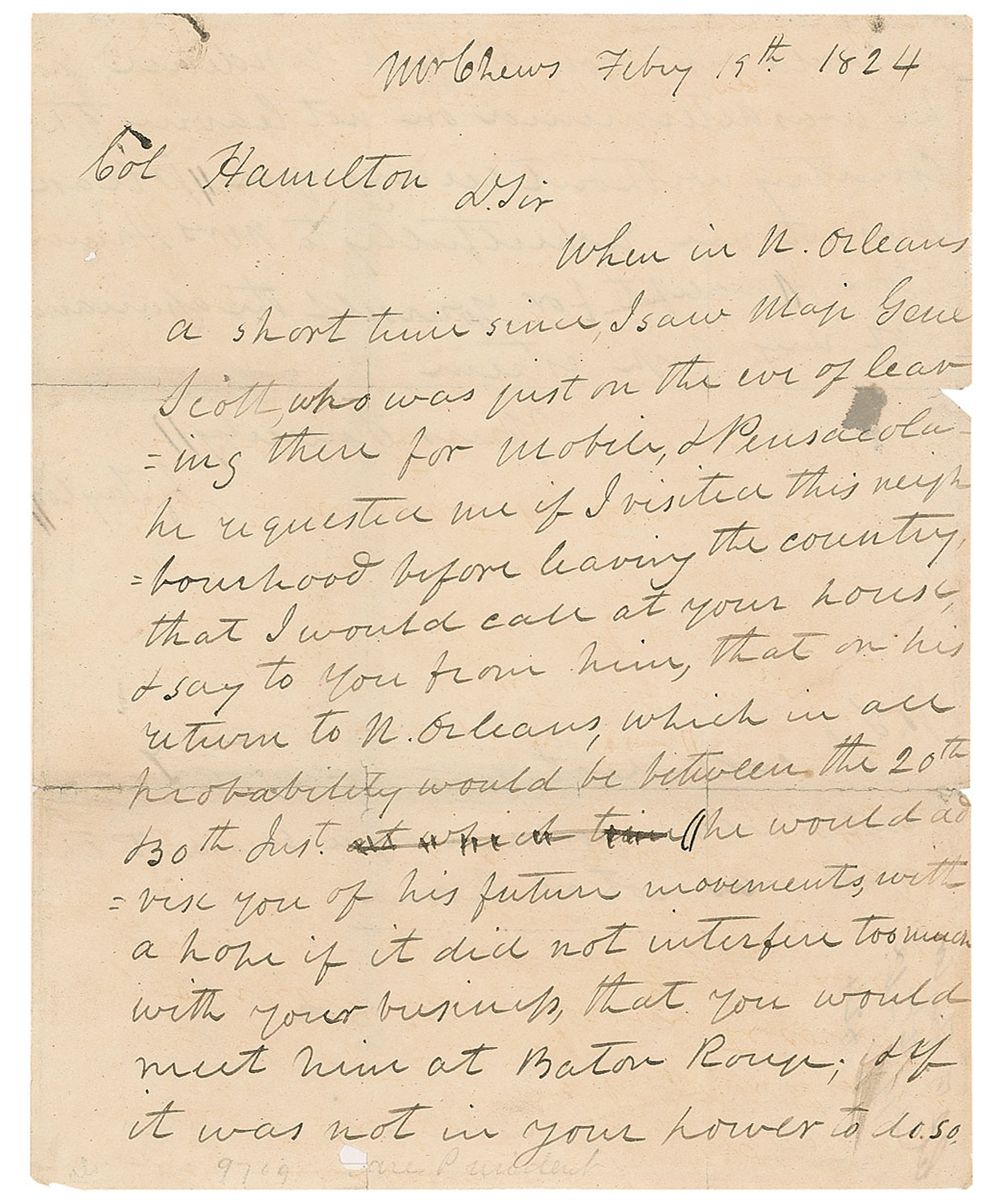 Mr Chews Feby 19th 1824
Col Hamilton
D. Sir
When in N. Orleans
a short time since, I saw Maj Genl
Scott, who was just on the eve of leav
=ing there for Mobile, & Pensacola-
he requested me if I visited this neigh
=bourhood before leaving the country,
that I would call at your house,
& say to you from him, that on his
return to N. Orleans, which in all
probability would be between the 20th
& 30th Inst. at which time he would ad
=vise you of his future movements, with
a hope if it did not interfere too much
with your business, that you would
meet him at Baton Rouge; & if
it was not in your power to do so,
9719